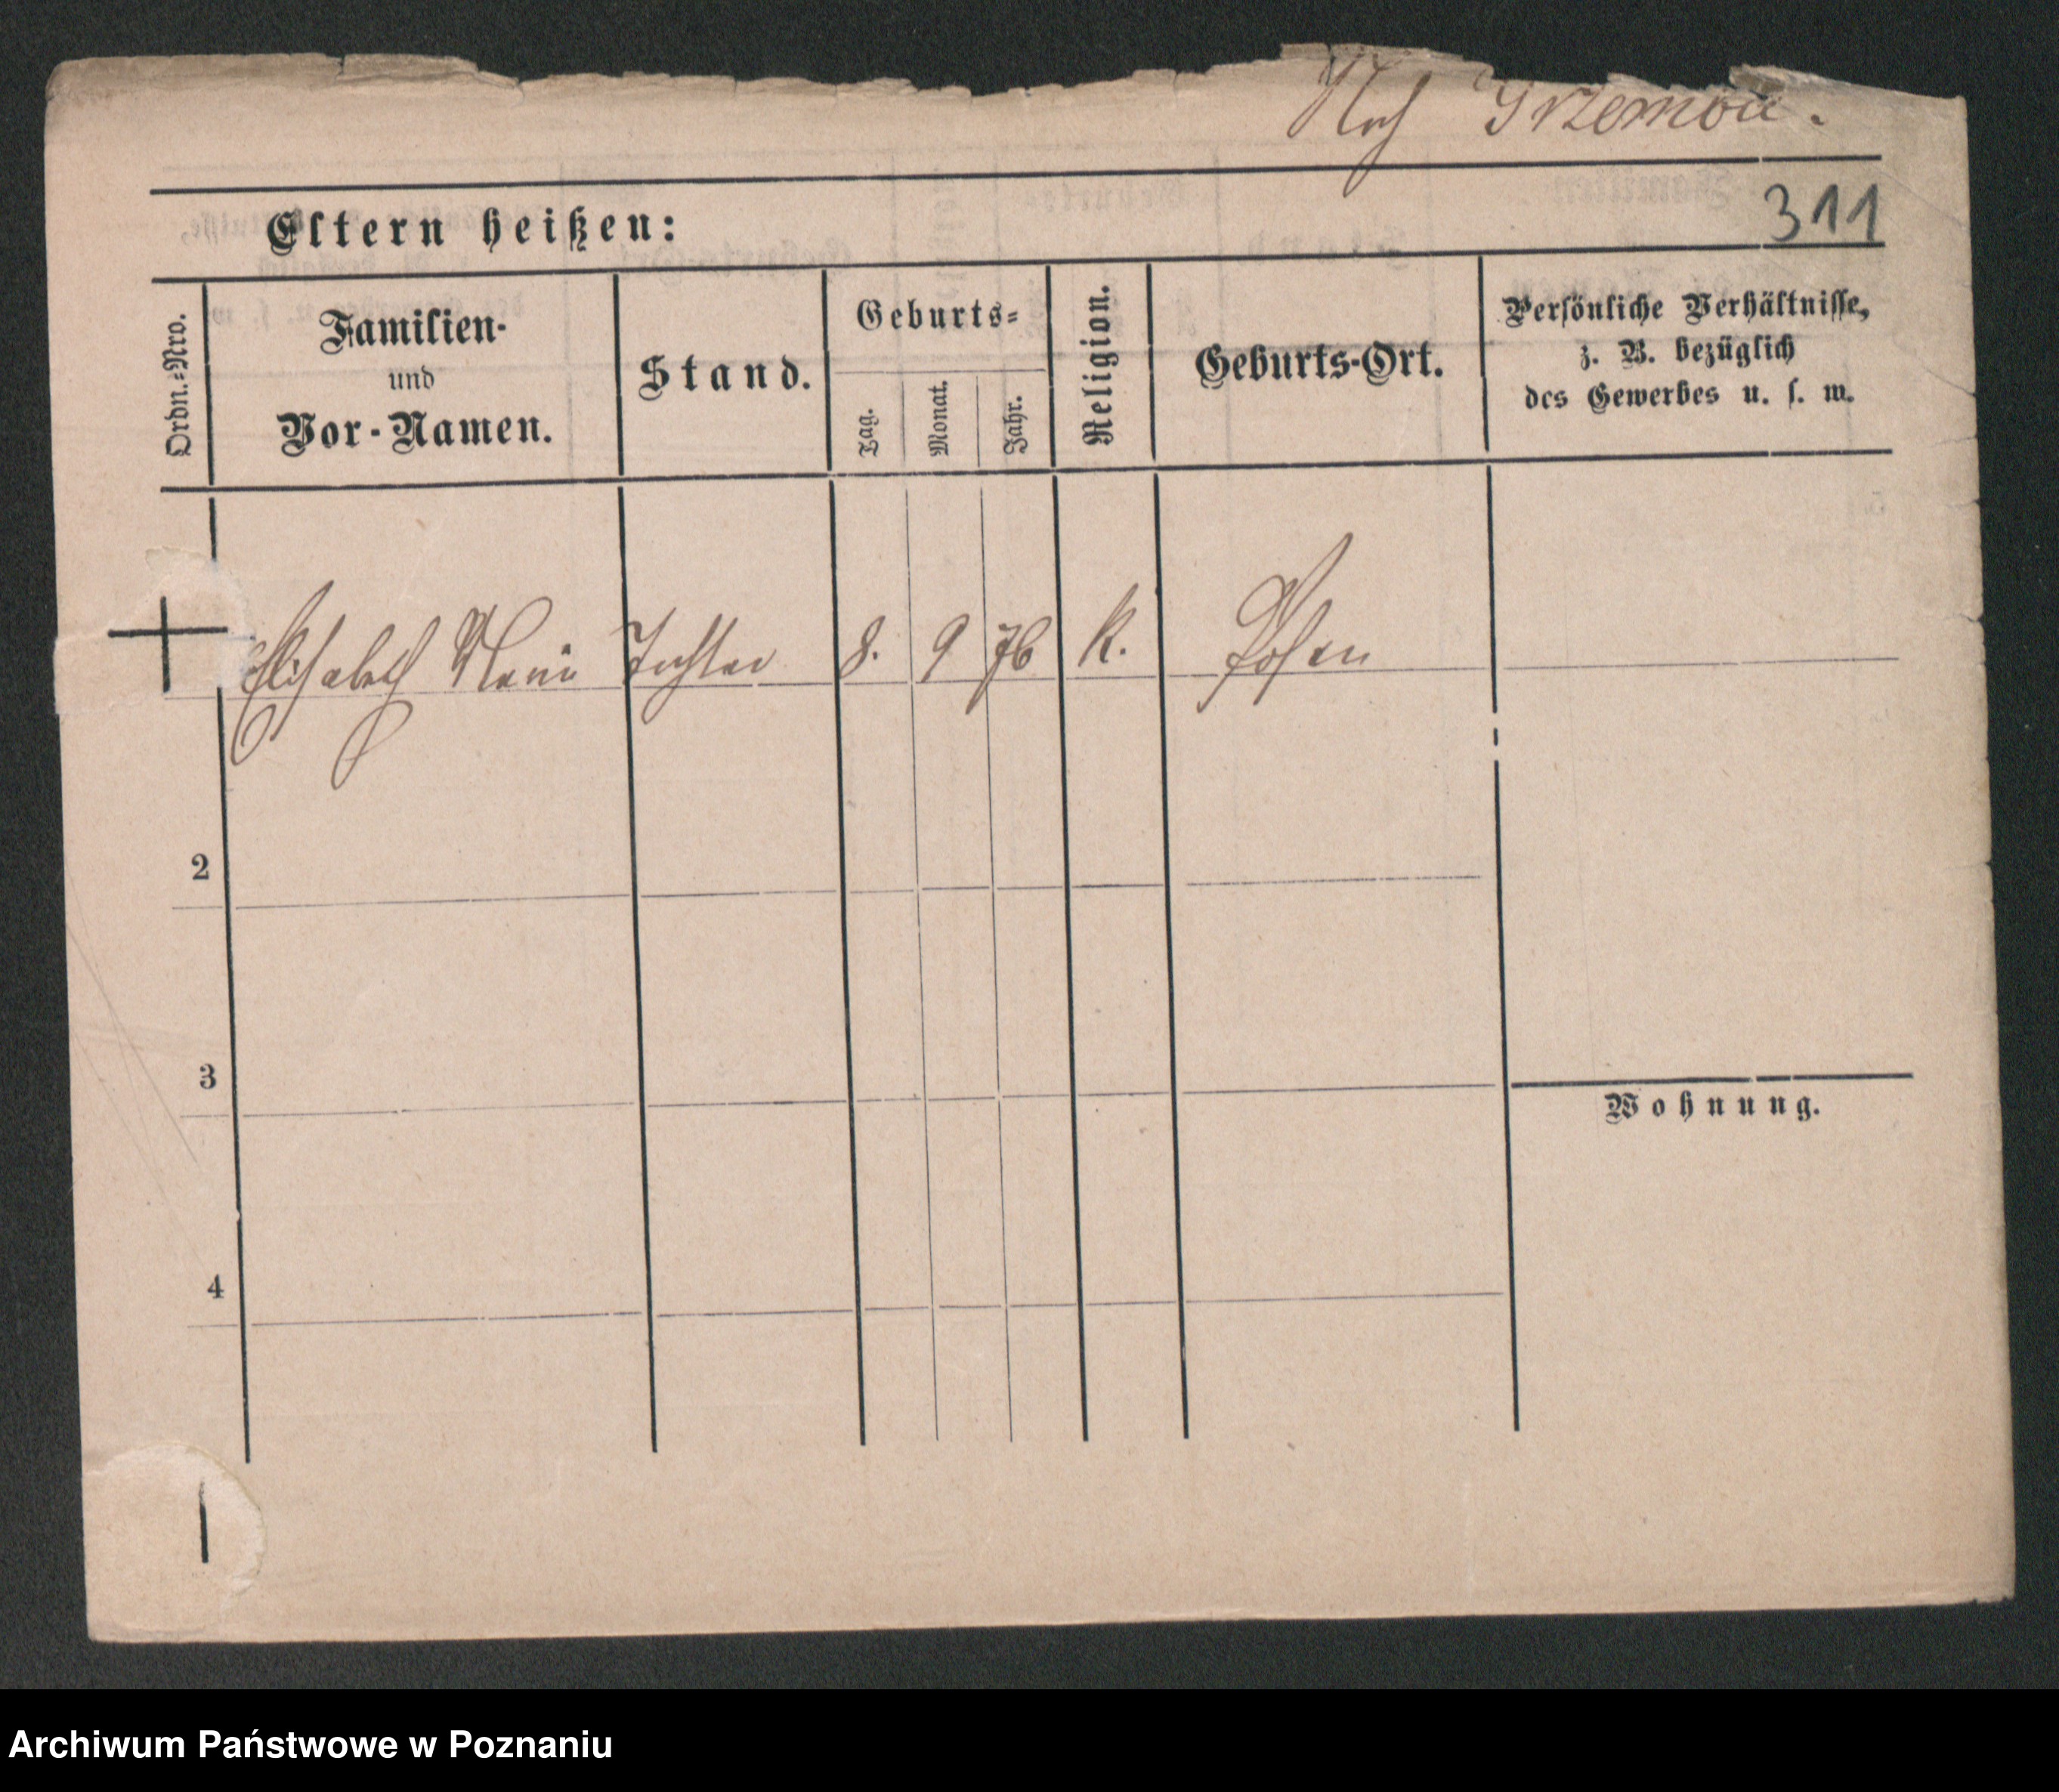 Nch Grzemba.
311
Eltern heißen:
Ordn.-Nro.
Familien-
und
Vor-Namen.
Stand.
Geburts-
Tag.
Monat.
Jahr.
Religion.
Geburts-Ort.
Persönliche Verhältnisse,
z. B. bezüglich
des Gewerbes u. s. w.
Elisabeth Marie Tochter 8. 9 76 K. Posen
2
3
Wohnung.
4
Archiwum Państwowe w Poznaniu